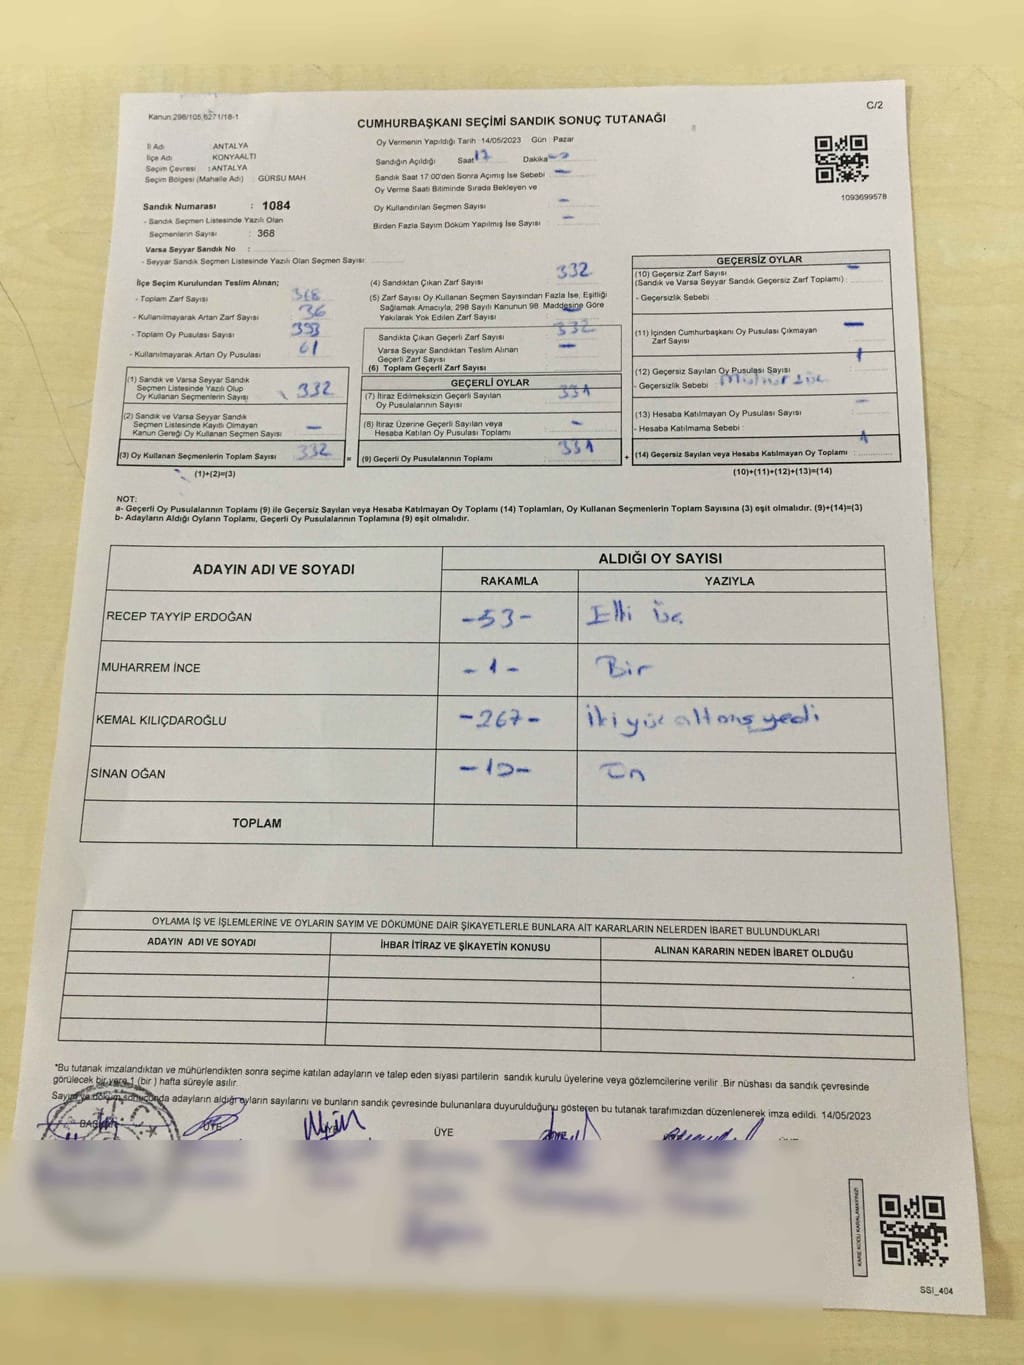 Kanun:298/105,6271/18-1
C/2
CUMHURBAŞKANI SEÇİMİ SANDIK SONUÇ TUTANAĞI
İl Adı : ANTALYA
İlçe Adı : KONYAALTI
Seçim Çevresi : ANTALYA
Seçim Bölgesi (Mahalle Adı) : GÜRSU MAH
Sandık Numarası : 1084
- Sandık Seçmen Listesinde Yazılı Olan
Seçmenlerin Sayısı : 368
Varsa Seyyar Sandık No :
- Seyyar Sandık Seçmen Listesinde Yazılı Olan Seçmen Sayısı:
Oy Vermenin Yapıldığı Tarih : 14/05/2023 Gün : Pazar
Sandığın Açıldığı Saat 17 Dakika
Sandık Saat 17:00'den Sonra Açımış İse Sebebi : -
Oy Verme Saati Bitiminde Sırada Bekleyen ve
Oy Kullandırılan Seçmen Sayısı -
Birden Fazla Sayım Döküm Yapılmış İse Sayısı -
1093699578
İlçe Seçim Kurulundan Teslim Alınan;
- Toplam Zarf Sayısı 368
- Kullanılmayarak Artan Zarf Sayısı : 36
- Toplam Oy Pusulası Sayısı : 393
- Kullanılmayarak Artan Oy Pusulası : 61
(1) Sandık ve Varsa Seyyar Sandık
Seçmen Listesinde Yazılı Olup
Oy Kullanan Seçmenlerin Sayısı : 332
(2) Sandık ve Varsa Seyyar Sandık
Seçmen Listesinde Kayıtlı Olmayan
Kanun Gereği Oy Kullanan Seçmen Sayısı : -
(3) Oy Kullanan Seçmenlerin Toplam Sayısı : 332
(1)+(2)=(3)
(4) Sandıktan Çıkan Zarf Sayısı : 332
(5) Zarf Sayısı Oy Kullanan Seçmen Sayısından Fazla İse, Eşitliği
Sağlamak Amacıyla, 298 Sayılı Kanunun 98. Maddesine Göre
Yakılarak Yok Edilen Zarf Sayısı : -
Sandıkta Çıkan Geçerli Zarf Sayısı : 332
Varsa Seyyar Sandıktan Teslim Alınan
Geçerli Zarf Sayısı : -
(6) Toplam Geçerli Zarf Sayısı
=
GEÇERLİ OYLAR
(7) İtiraz Edilmeksizin Geçerli Sayılan
Oy Pusulalarının Sayısı : 331
(8) İtiraz Üzerine Geçerli Sayılan veya
Hesaba Katılan Oy Pusulası Toplamı : -
(9) Geçerli Oy Pusulalarının Toplamı : 331
+
GEÇERSİZ OYLAR
(10) Geçersiz Zarf Sayısı
(Sandık ve Varsa Seyyar Sandık Geçersiz Zarf Toplamı) : -
- Geçersizlik Sebebi :
(11) İçinden Cumhurbaşkanı Oy Pusulası Çıkmayan
Zarf Sayısı : -
(12) Geçersiz Sayılan Oy Pusulası Sayısı : 1
- Geçersizlik Sebebi : Mühürsüz
(13) Hesaba Katılmayan Oy Pusulası Sayısı : -
- Hesaba Katılmama Sebebi :
(14) Geçersiz Sayılan veya Hesaba Katılmayan Oy Toplamı : 1
(10)+(11)+(12)+(13)=(14)
NOT:
a- Geçerli Oy Pusulalarının Toplamı (9) ile Geçersiz Sayılan veya Hesaba Katılmayan Oy Toplamı (14) Toplamları, Oy Kullanan Seçmenlerin Toplam Sayısına (3) eşit olmalıdır. (9)+(14)=(3)
b- Adayların Aldığı Oyların Toplamı, Geçerli Oy Pusulalarının Toplamına (9) eşit olmalıdır.
ADAYIN ADI VE SOYADI
ALDIĞI OY SAYISI
RAKAMLA YAZIYLA
RECEP TAYYİP ERDOĞAN -53- Elli üç
MUHARREM İNCE -1- Bir
KEMAL KILIÇDAROĞLU -267- İkiyüz altmış yedi
SİNAN OĞAN -10- On
TOPLAM
OYLAMA İŞ VE İŞLEMLERİNE VE OYLARIN SAYIM VE DÖKÜMÜNE DAİR ŞİKAYETLERLE BUNLARA AİT KARARLARIN NELERDEN İBARET BULUNDUKLARI
ADAYIN ADI VE SOYADI İHBAR İTİRAZ VE ŞİKAYETİN KONUSU ALINAN KARARIN NEDEN İBARET OLDUĞU
*Bu tutanak imzalandıktan ve mühürlendikten sonra seçime katılan adayların ve talep eden siyasi partilerin sandık kurulu üyelerine veya gözlemcilerine verilir .Bir nüshası da sandık çevresinde
görülecek bir yere 1 (bir ) hafta süreyle asılır.
Sayım ve döküm sonucunda adayların aldığı oyların sayılarını ve bunların sandık çevresinde bulunanlara duyurulduğunu gösteren bu tutanak tarafımızdan düzenlenerek imza edildi. 14/05/2023
BAŞKAN ÜYE ÜYE ÜYE
T.C.
KARE KODU KARALAMAYINIZ!
SSI_404